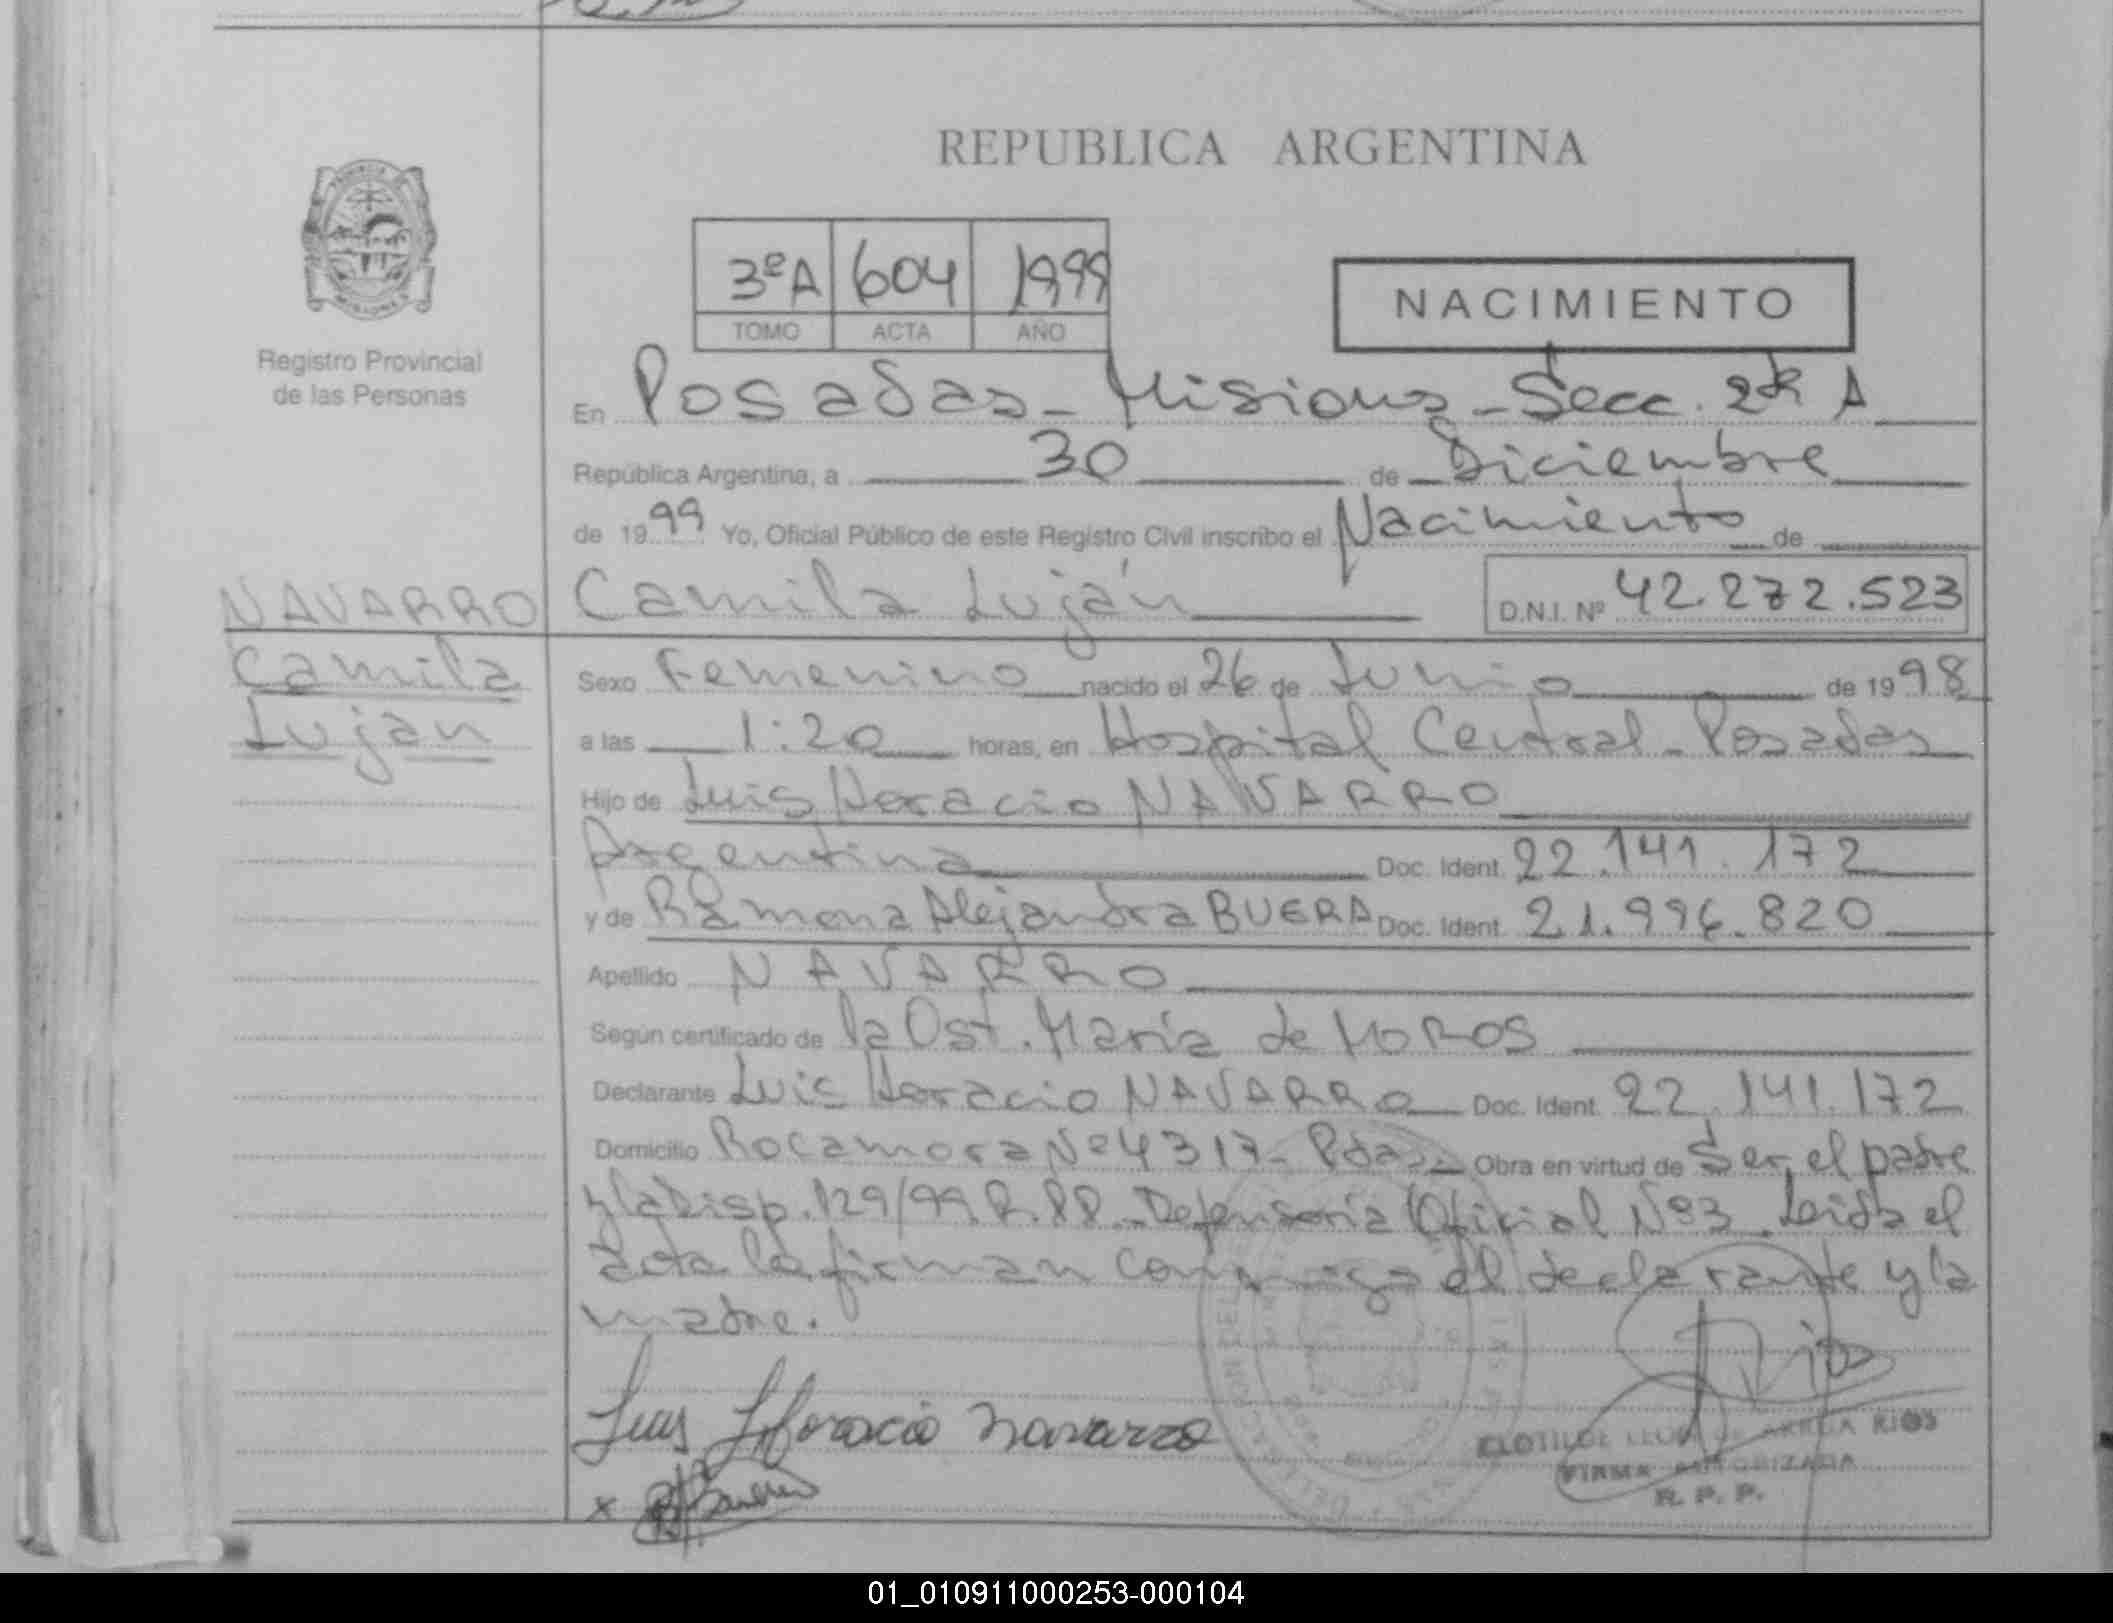 REPUBLICA ARGENTINA
3ºA 604 1999
TOMO ACTA AÑO
NACIMIENTO
Registro Provincial
de las Personas
En Posadas - Misiones - Secc. 2da A
República Argentina, a 30 de Diciembre
de 1999 Yo, Oficial Público de este Registro Civil inscribo el Nacimiento de
Camila Luján D.N.I. Nº 42.272.523
NAVARRO
Camila
Luján
Sexo Femenino nacido el 26 de Junio de 1998
a las 1:20 horas, en Hospital Central - Posadas
Hijo de Luis Horacio NAVARRO
Argentina Doc. Ident. 22.141.172
y de Ramona Alejandra BUERA Doc. Ident. 21.996.820
Apellido NAVARRO
Según certificado de la Ost. María de MOROS
Declarante Luis Horacio NAVARRO Doc. Ident. 22.141.172
Domicilio Rocamora Nº 4317 - Pdas. Obra en virtud de Ser el padre
y la Disp. 129/99 R.PP. - Defensoría Oficial Nº 3. Leida el
acta la firman conmigo el declarante y la
madre.
Luis Horacio Navarro
x
Rios
CLOTILDE DE ARRUA RIOS
FIRMA AUTORIZADA
R. P. P.
01_010911000253-000104